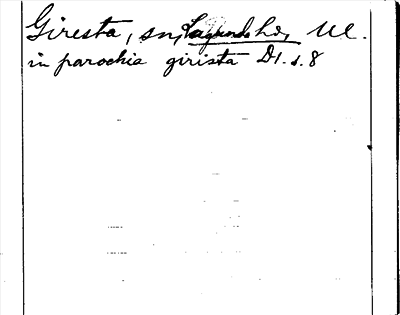 Giresta, sn, Lagunda hd, Ul.
in parochia girista D1.s.8